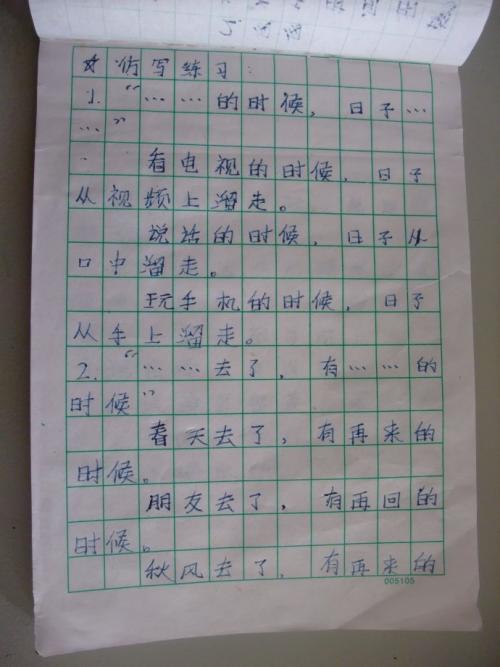 ☆仿写练习:
1. “……的时候，日子…
…”
看电视的时候，日子
从视频上溜走。
说话的时候，日子从
口中溜走。
玩手机的时候，日子
从手上溜走。
2. “……去了，有……的
时候”
春天去了，有再来的
时候。
朋友去了，有再回的
时候。
秋风去了，有再来的
005105